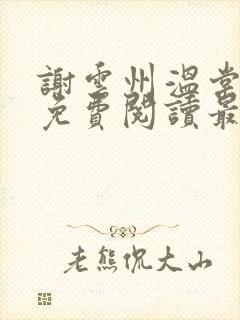 謝雲州溫棠
免費閱讀最
老熊侃大山